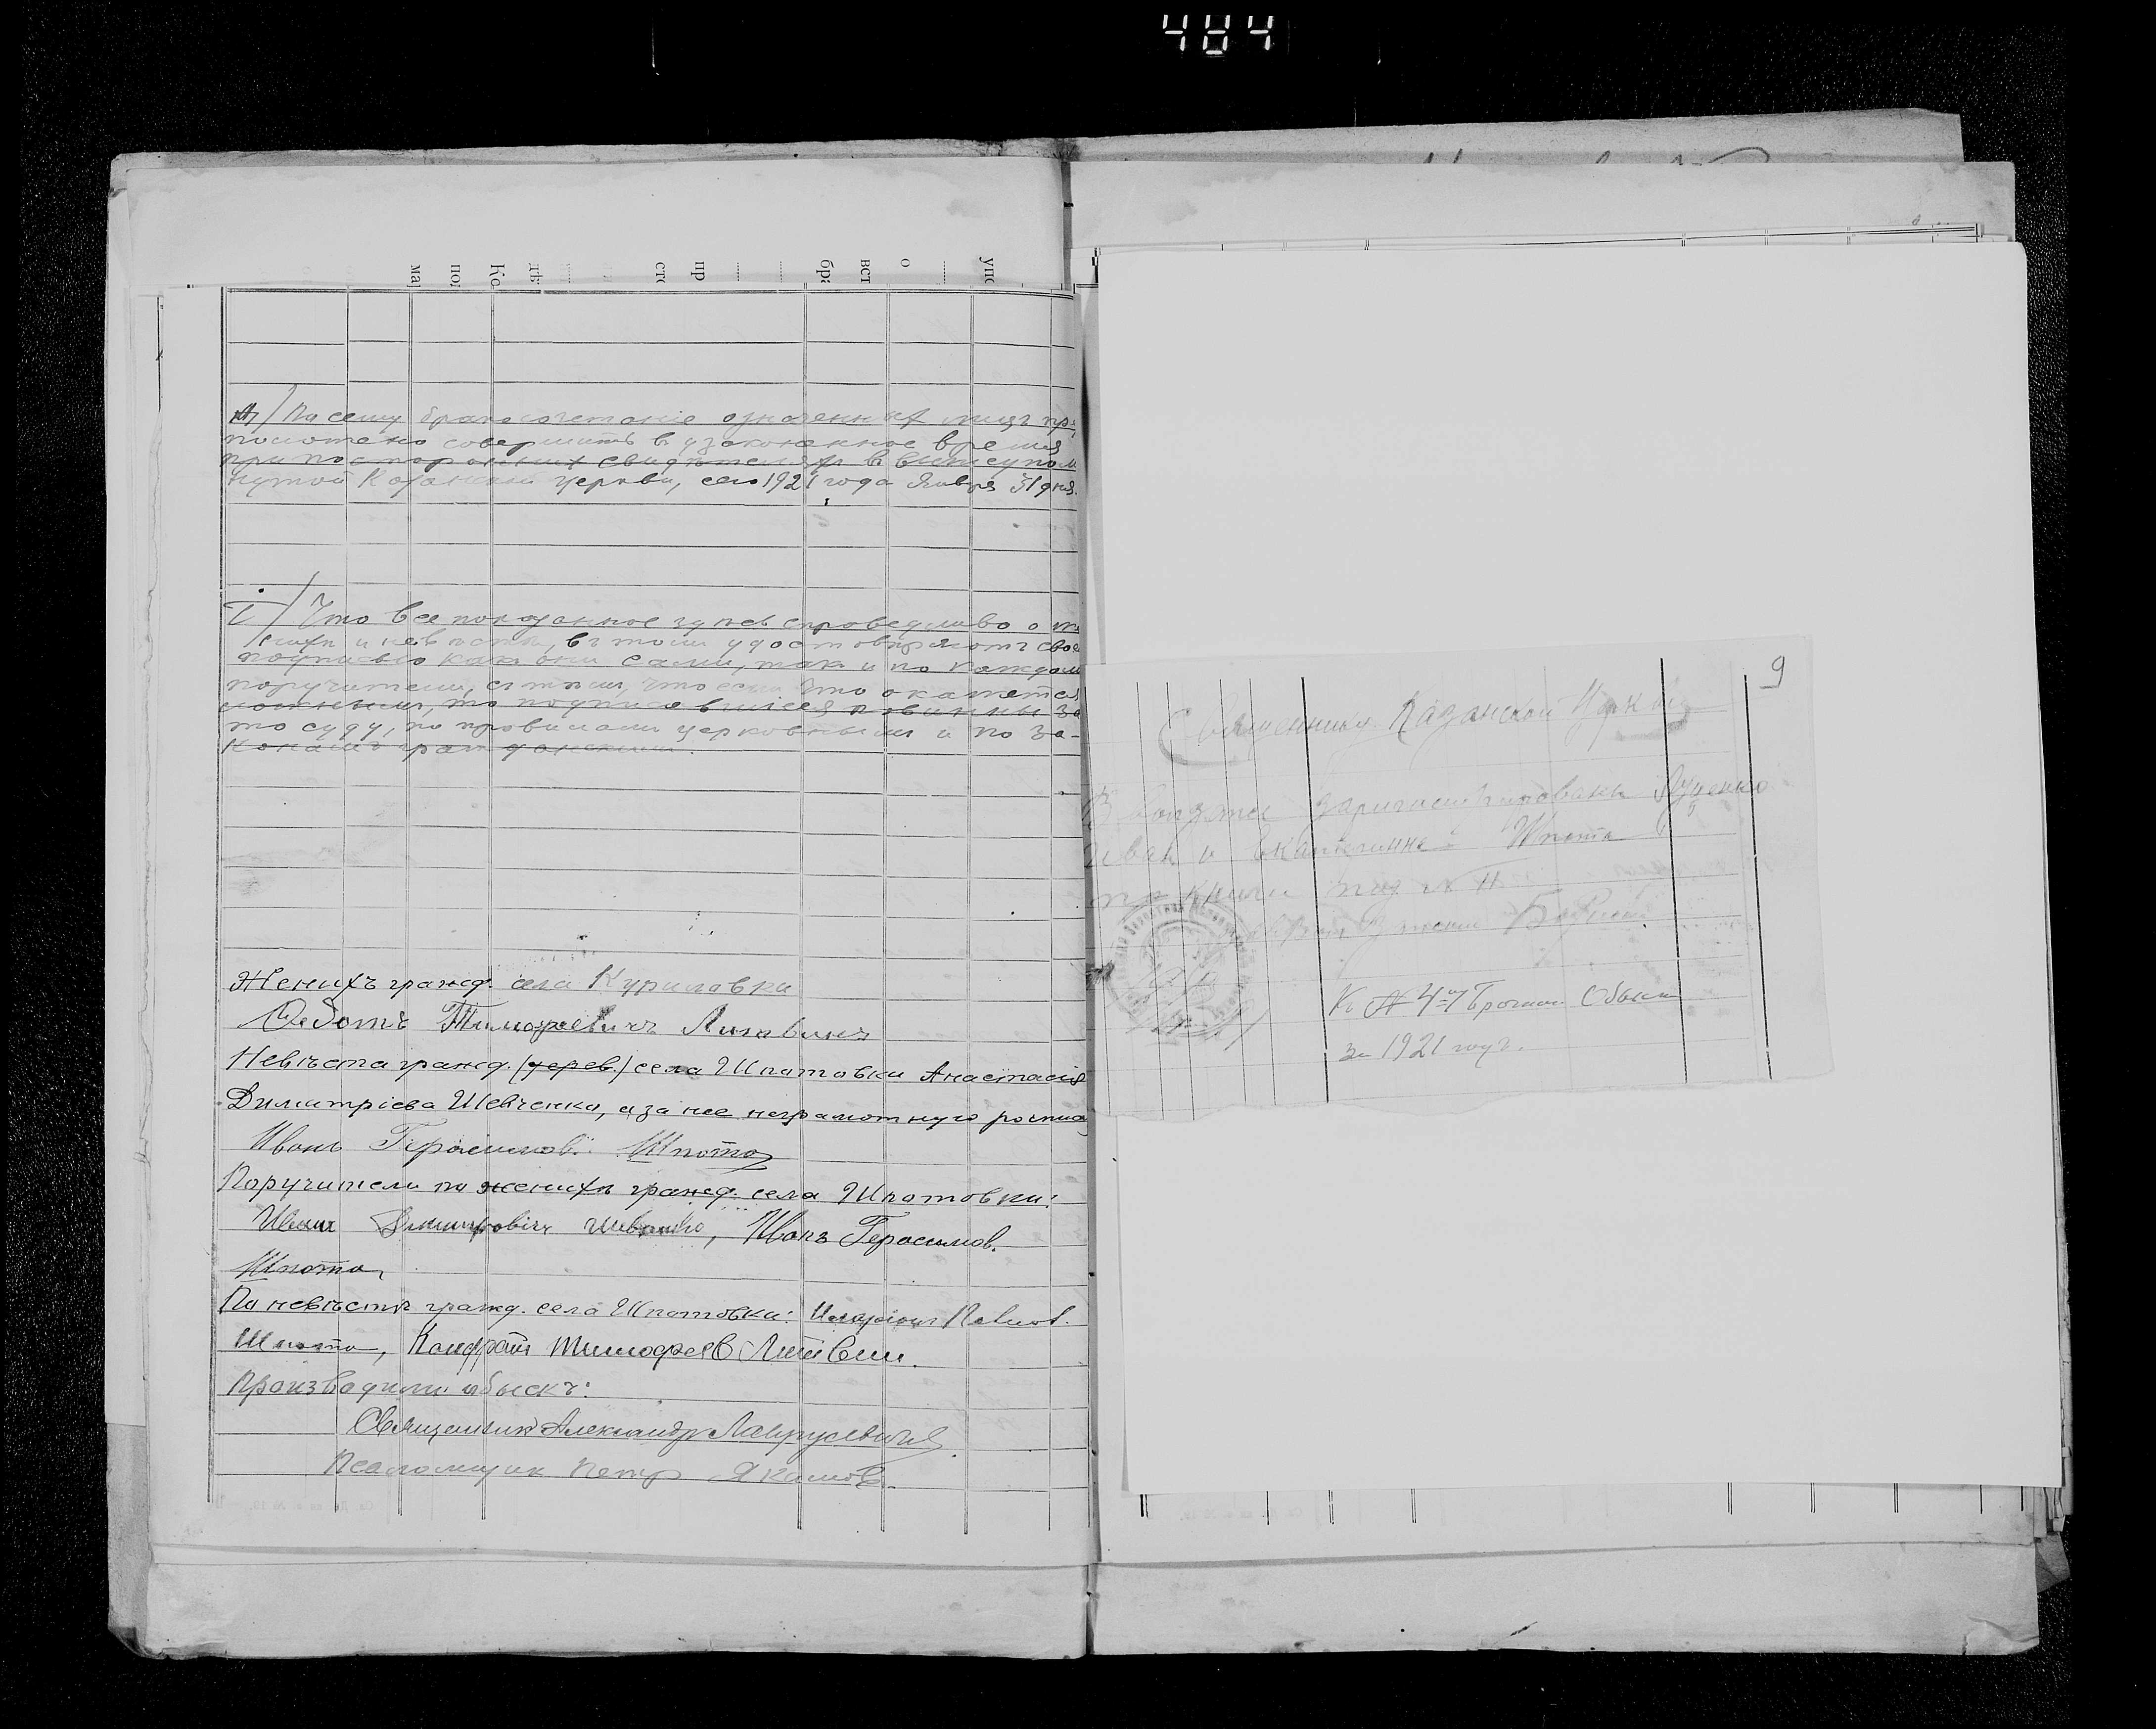 484
ма по. Ко дѣ сто пр бра вст о упо
А/ По сему бракосочетаніе означенныхъ лицъ пре
положено совершить въ узаконенное время
при постороннихъ свидѣтеляхъ въ вышеупомя
нутой Казанской церкви, сего 1921 года Января 31 дня.
І/ Что все показанное здѣсь справедливо о же
нихѣ и невѣстѣ, въ томъ удостовѣряютъ своею
подписью какъ они сами, такъ и по каждом
поручители, съ тѣмъ, что если что окажется
ложнымъ, то подписавшіеся повинны за
то суду, по правиламъ церковнымъ и по за-
конамъ гражданскимъ.
Женихъ гражд. села Куриловки
Ѳедотъ Тимофеевичъ Литвинъ
Невѣста гражд. (дерев.) села Шпотовки Анастасія
Димитріева Шевченко, а за нее неграмотную роспис
Иванъ Герасимов. Шпота
Поручители по женихѣ гражд. села Шпотовки:
Иванъ Дмитровичъ Шевченко, Иванъ Герасимов.
Шпота,
По невѣстѣ гражд. села Шпотовки: Иларіонъ Павлов.
Шпота, Кондратъ Тимофеев Литвин.
Производили обыскъ:
Священникъ Александръ
Псаломщик Петр Якимов.
9
Священнику Казанской Церкви
В зарегистрированы Луценко
Иван и Екатерина Шпота
по книги под № 11
К № 4-му Брачном Обыск
за 1921 годъ.